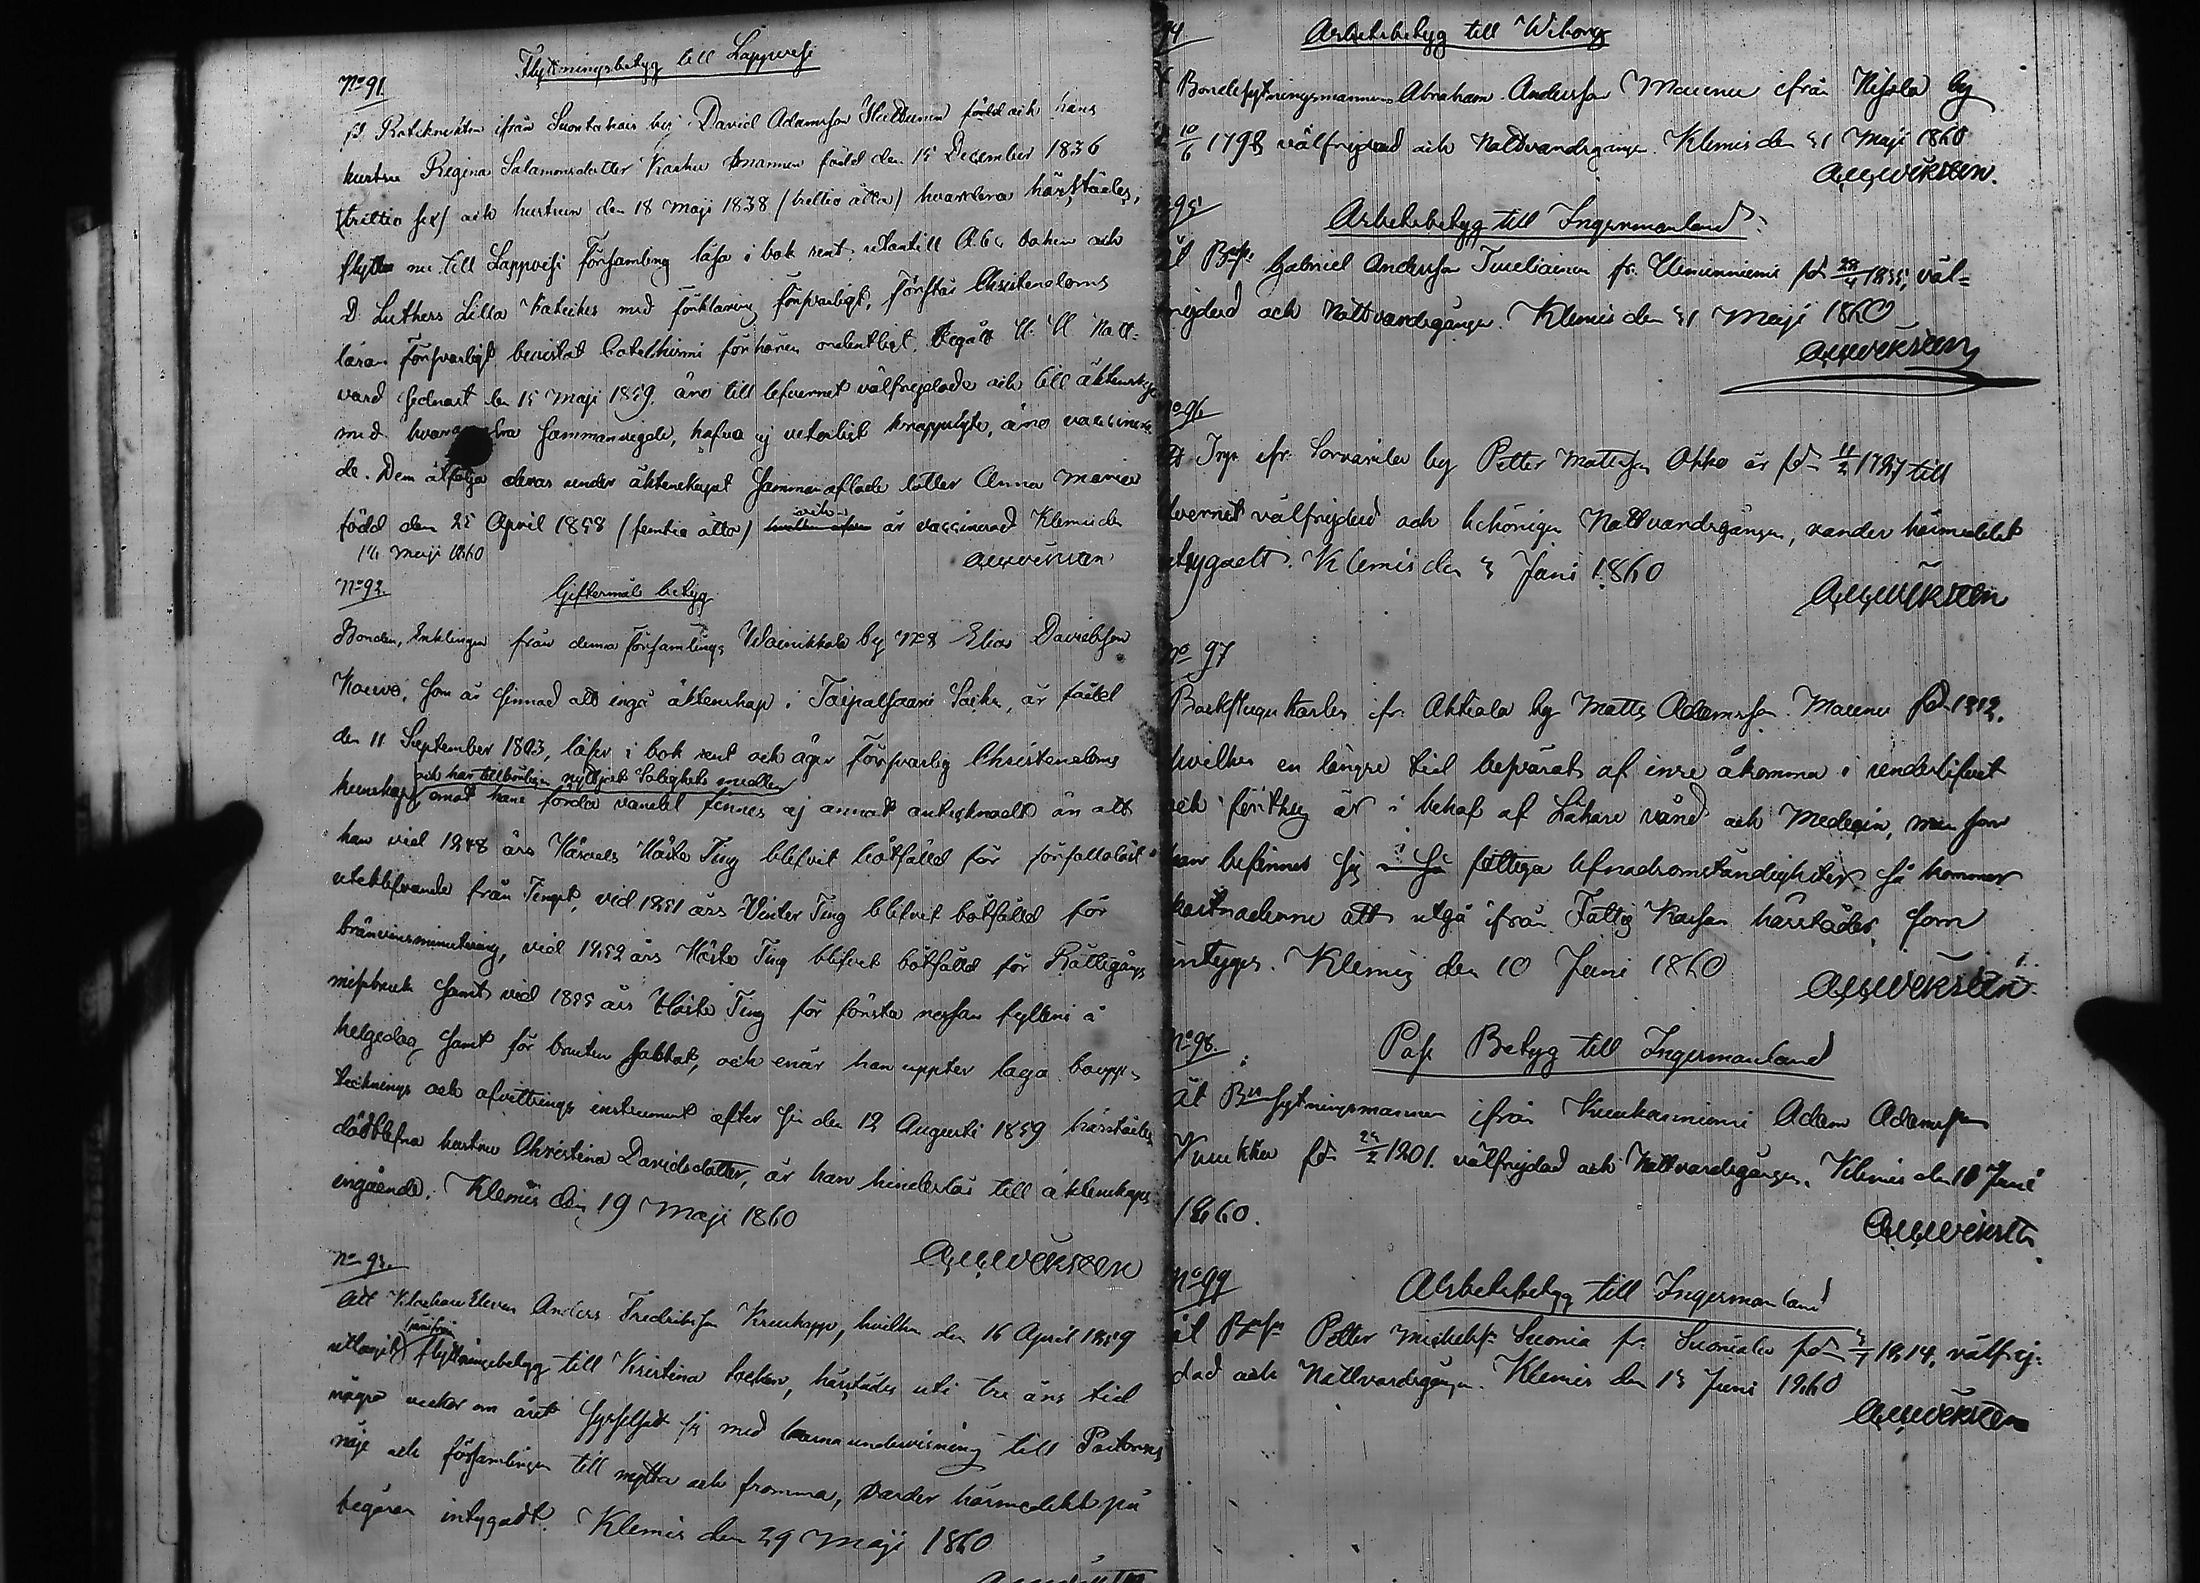 Flyttningsbetyg till Lappvesi
No 91
fd Roteknekten ifrån Suontakais by David Adamsson Huttunen och hans
hustru Regina Salamonsdotter Karhu mannen född den 15 December 1836
(trettio sex) och hustrun den 18 Maji 1838 (trettio åtta) hvardera härstädes,
flytta nu till Lappvesi Församling läsa i bok rent, utantill A.b.c boken och
D. Luthers Lilla Kateches med förklaring försvarligt, förstår Christendoms
läran försvarligt bevistat Catechismi förhören ordentligt, begått H. H. Natt-
vard sednast den 15 Maji 1859. äro till lefvernet välfrejdade och till äktenskap
med hvarandra sammanvigde, hafva ej veterligt koppor, äro vaccinera
de. Dem åtfölja deras under äktenskapet sammanaflade dotter Anna Maria
född den 25 April 1858 (femtio åtta) och är vaccinerad Klemis den
14 Maji 1860
No 92.
Giftermåls betyg
Bonden, Enklingen från denna församlings Wainikkala by No 8 Elias Davidsson
Kouvo, som är sinnad att ingå äktenskap i Taipalsaari Socken, är född
den 11 September 1803, läser i bok rent och äger försvarlig Christendoms
och har tillbörligen nyttjat Salighets medlen
kunskap, emot hans förda vandel finnes ej annat anteknadt än att
han vid 1848 års Härads Höste Ting blifvit bötfälld för förfallolöst
uteblifvande från Tinget, vid 1851 års Vinter Ting blifvit bötfälld för
bränvinsminutering, vid 1852 års Höste Ting blifvit bötfälld för Rättegångs
missbruk samt vid 1855 års Höste Ting för första resan fylleri å
helgedag samt för bruten sabbat, och enär han uppter laga bouppt-
tecknings och afvittrings instrument efter sin den 12 Augusti 1859 härstädes
dödblefna hustru Christina Davidsdotter, är han hinderlös till äktenskaps
ingående. Klemis den 19 Maji 1860
No 93.
Att Klockare Eleven Anders Fredriksson Kruskopp, hvilken den 16 April 1859
uttagit flyttningsbetyg till Kristina socken, härstädes uti tre års tid
några veckor om året sysselsatt sig med barnaundervisning till Pastorns
nöje och församlingen till nytta och fromma, varder härmedelst på
begäran intygadt. Klemis den 29 Maji 1860
94
Arbetsbetyg till Wiborg
Bondesytningsmannen Abraham Andersson Mauno ifrån Hisola by
10/6 1798 välfrejdad och Nattvardsgången. Klemis den 31 Maji 1860
95
Arbetsbetyg till Ingermanland
åt Gabriel Andersson Tuuliainen fr. Uimunniemi fd 28/4 1835, väl-
frejdad och Nattvardsgången. Klemis den 31 Maji 1860
No 96
Inys ifr. Sorvarila by Petter Mattsson Okko är fd 11/2 1797 till
lefvernet välfrejdad och behörigen Nattvardsgången, varder härmedelst
betygadt. Klemis den 3 Juni 1860
No 97
Backstugu karlen ifr. Aktiala by Matts Adamsson Mauno fd 1812,
hvilken en längre tid besvärats af inre åkomma i underlifvet
och förthy är i behof af Läkare vård och Medicin, men som
han befinnes sig i så fattiga lefnadsomständigheter så kommer
kostnaderne att utgå ifrån Fattig Kassan härstädes, som
intygas. Klemis den 10 Juni 1860
No 98.
Pass Betyg till Ingermanland
åt Bdesytningsmannen ifrån Kuukanniemi Adam Adamsson
Kuukka fd 24/2 1801. välfrejdad och Nattvardsgången. Klemis den 10 Juni
1860.
No 99
Arbetsbetyg till Ingermanland
åt Petter Michelss: Suonia fr. Suonala fd 3/7 1814, välfrej-
dad och Nattvardsgången. Klemis den 13 Juni 1860